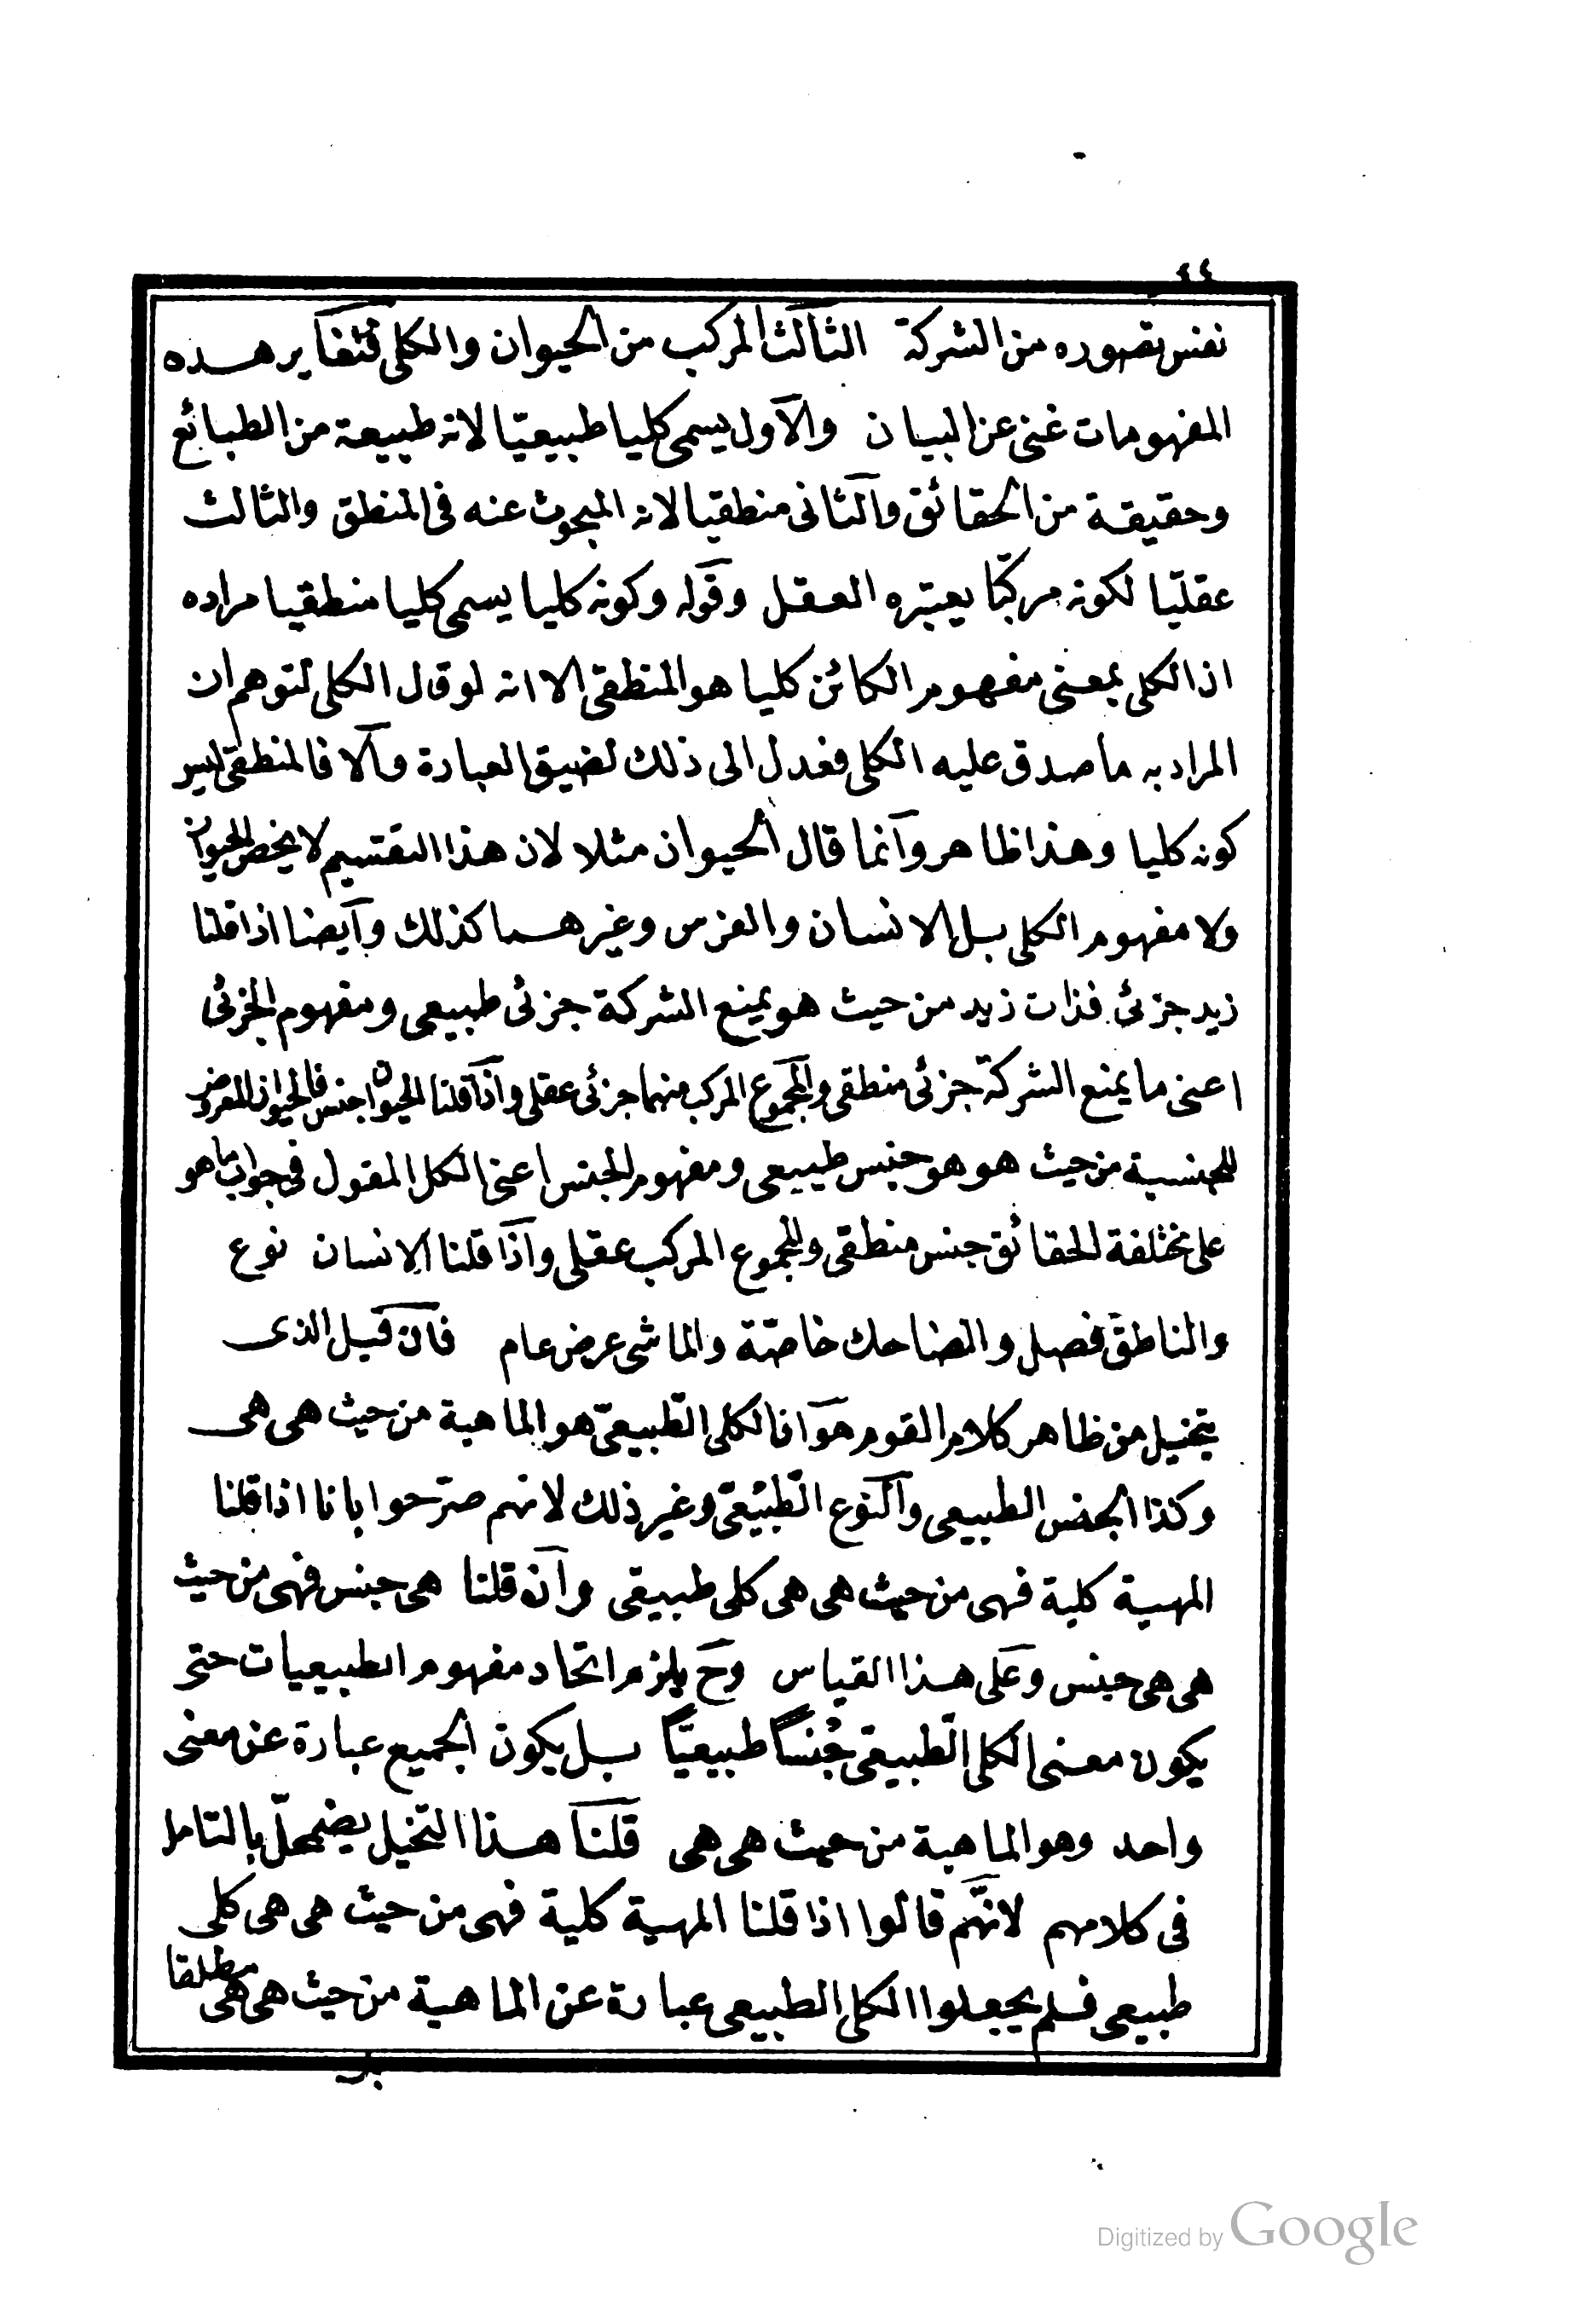 ٤٤
نفس تصوره من الشركة الثالث المركب من الحيوان والكلى فتغاير هذه
المفهومات غنى عن البيان والاول يسمى كليا طبيعيّا لانه طبيعة من الطبائع
وحقيقة من الحقائق والثانى منطقيا لانه المبحوث عنه فى المنطق والثالث
عقليّا لكونه مركبّا يعتبره العقل وقوله وكونه كليا يسمى كليا منطقيا مراده
ان الكلى بمعنى مفهوم الكائن كليا هو المنطقى الا انه لو قال الكلى لتوهم ان
المراد به ما صدق عليه الكلى فعدل الى ذلك لضيق العبارة والا فالمنطقى ليس
كونه كليا وهذا ظاهر وانما قال الحيوان مثلا لان هذا التقسيم لا يخص الحيوان
ولا مفهوم الكلى بل الانسان والفرس وغيرهما كذلك وايضا اذا قلنا
زيد جزئى فذات زيد من حيث هو يمنع الشركة جزئى طبيعى ومفهوم الجزئى
اعنى ما يمنع الشركة جزئى منطقى والمجموع المركب منهما جزئى عقلى واذا قلنا الحيوان جنس فالحيوان المعروض
للجنسية من حيث هو هو جنس طبيعى ومفهوم الجنس اعنى الكل المقول فى جواب ما هو
على مختلفة الحقائق جنس منطقى والمجموع المركب عقلى واذا قلنا الانسان نوع
والناطق فصل والضاحك خاصّة والماشى عرض عام فان قيل الذى
يتخيل من ظاهر كلام القوم هو ان الكلى الطّبيعىّ هو الماهية من حيث هى هى
وكذا الجنس الطبيعى والنوع الطّبيعىّ وغير ذلك لانهم صرّحوا بانا اذا قلنا
المهية كلية فهى من حيث هى هى كلى طبيعى وان قلنا هى جنس فهى من حيث
هى هى جنس وعلى هذا القياس وح يلزم اتحاد مفهوم الطبيعيات حتى
يكون معنى الكلى الطّبيعى جُنساً طبيعيّاً بل يكون الجميع عبارة عن معنى
واحد وهو الماهية من حيث هى هى قلنا هذا التخيل يضمحلّ بالتامل
فى كلامهم لانّهم قالوا اذا قلنا المهية كلية فهى من حيث هى هى كلى
طبيعى فلم يجعلوا الكلى الطبيعى عبارة عن الماهية من حيث هى هى مطلقا
بل
Digitized by Google